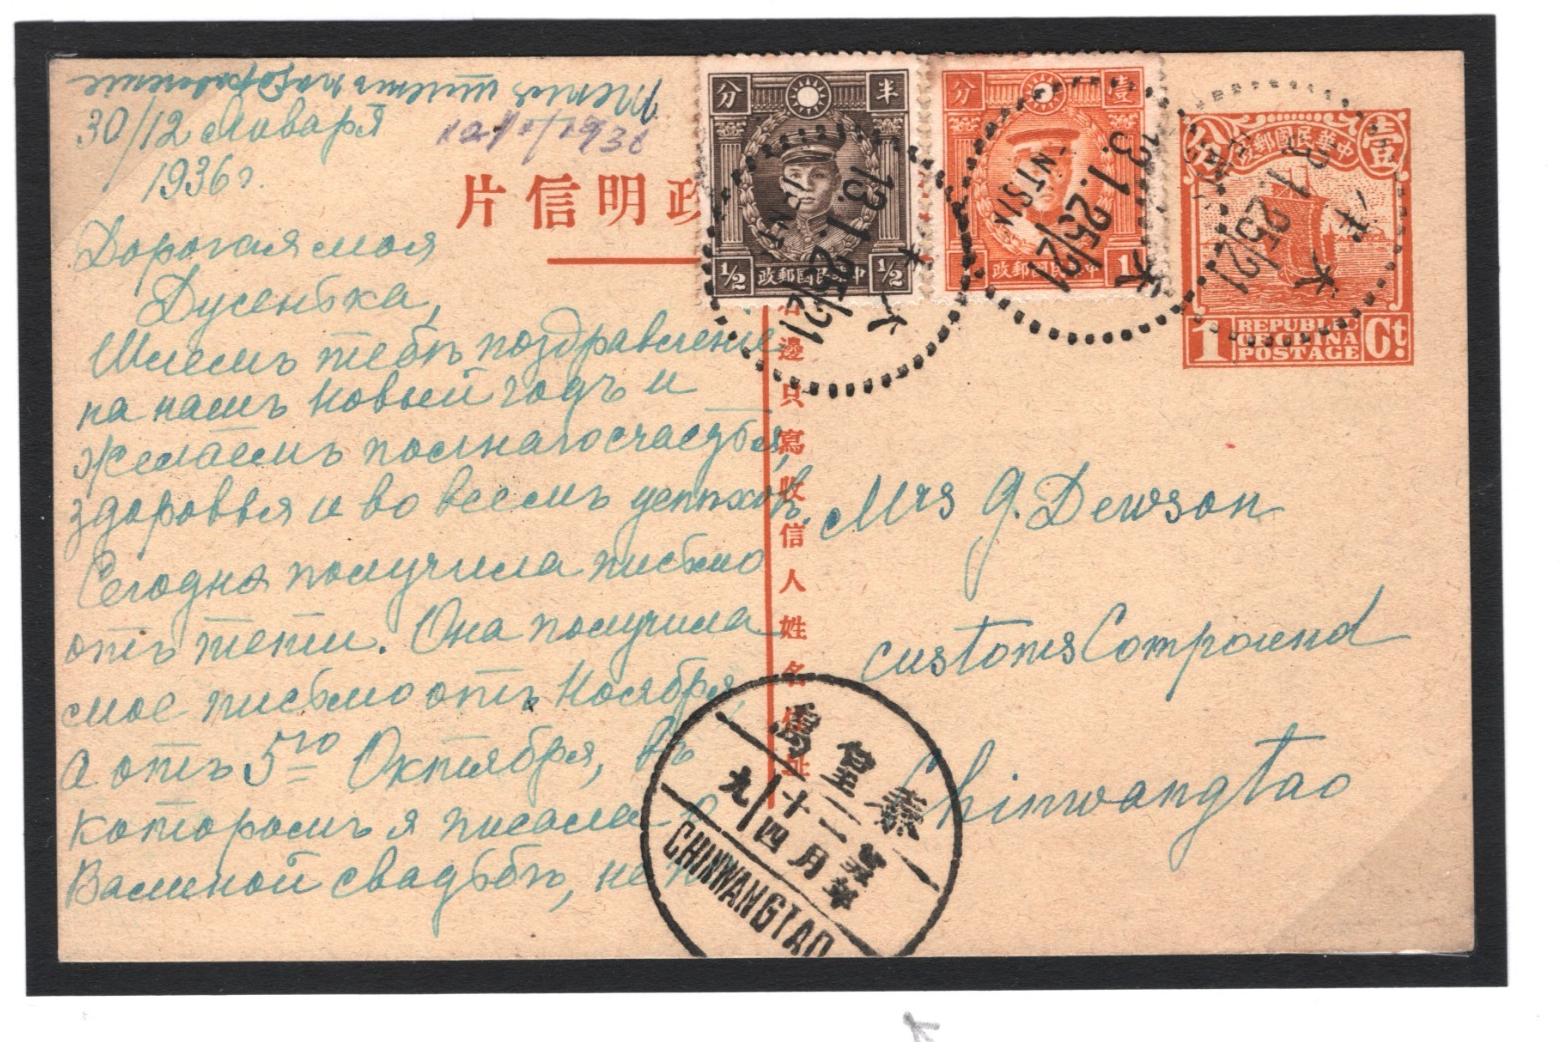 30/12 Января
1936 г.
Дорогая моя
Дусенька,
Шлемъ тебѣ поздравленіе
на нашъ Новый годъ и
желаемъ полнаго счастья,
здоровья и во всемъ успѣховъ.
Сегодня получила письмо
отъ тети. Она получила
мое письмо отъ Ноября,
а отъ 5го Октября, въ
которомъ я писала о
Валиной свадьбѣ, не
片信明政
分 半
½ 政郵國民華中 ½
分 壹
政郵國民華中 1
13.1.25/21
13.1.25/21
13.1.25/21
NTSIN
分 政郵國民華中 壹
1 REPUBLIC OF CHINA POSTAGE Ct.
邊只寫收信人姓名住址
Mrs G. Dewson
Customs Compound
Chinwangtao
島皇秦
九 十四 一月
CHINWANGTAO